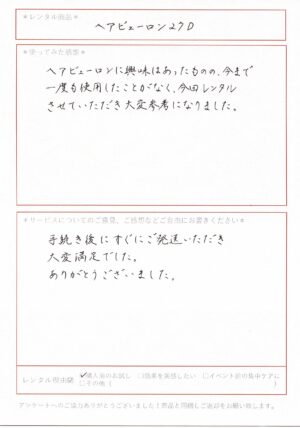 ＊レンタル商品＊
ヘアビューロン27D
＊使ってみた感想＊
ヘアビューロンに興味はあったものの、今まで
一度も使用したことがなく、今回レンタル
させていただき大変参考になりました。
＊サービスについてのご意見、ご感想などご自由にお書きください＊
手続き後にすぐにご発送いただき
大変満足でした。
ありがとうございました。
レンタル理由欄 ✓購入前のお試し □効果を実感したい □イベント前の集中ケアに
□その他（ ）
アンケートへのご協力ありがとうございました！商品と同梱しご返却をお願い致します。